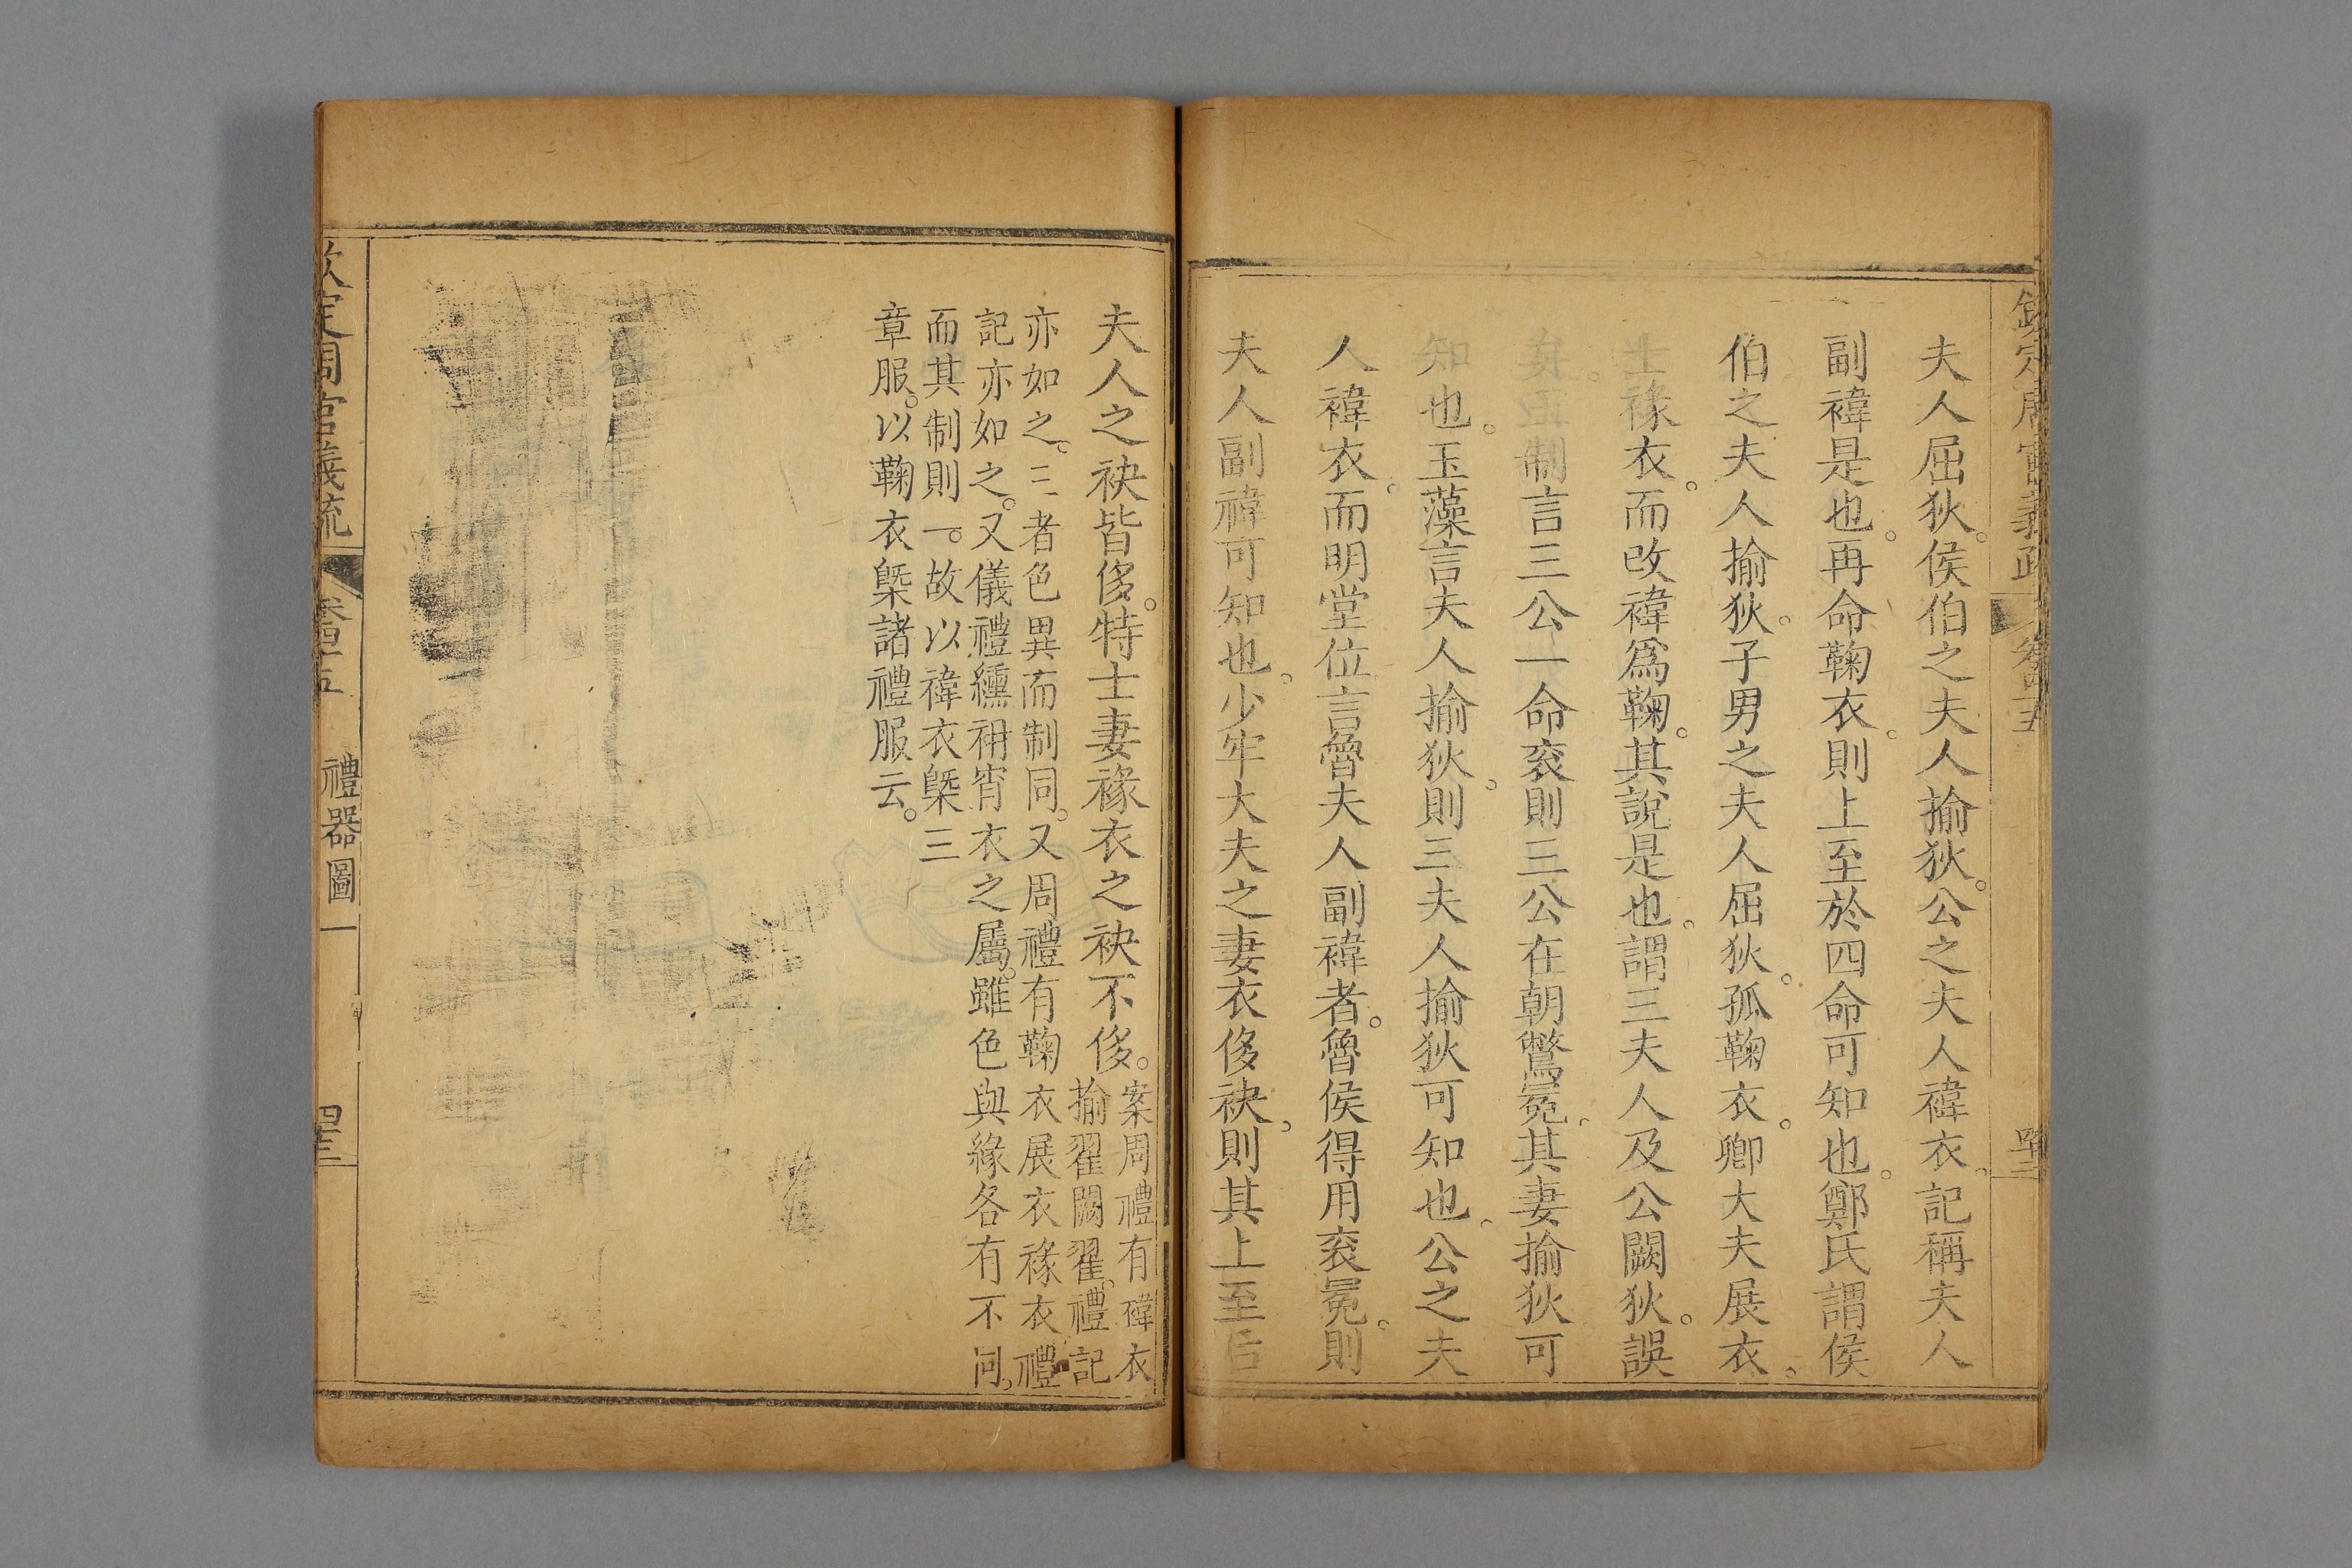 欽定周官義疏 卷四十五 四十三
夫人屈狄。侯伯之夫人揄狄。公之夫人褘衣。記稱夫人
副褘是也。再命鞠衣。則上至於四命可知也。鄭氏謂侯
伯之夫人揄狄。子男之夫人屈狄。孤鞠衣。卿大夫展衣。
士褖衣。而改褘爲鞠。其說是也。謂三夫人及公闕狄。誤
矣。王制言三公一命衮則三公在朝鷩冕。其妻揄狄可
知也。玉藻言夫人揄狄。則三夫人揄狄可知也。公之夫
人褘衣。而明堂位言魯夫人副褘者。魯侯得用衮冕。則
夫人副褘可知也。少牢大夫之妻衣侈袂。則其上至后
夫人之袂皆侈。特士妻褖衣之袂不侈。案周禮有褘衣
揄翟闕翟。禮記
亦如之。三者色異而制同。又周禮有鞠衣展衣褖衣禮
記亦如之。又儀禮纁袡宵衣之屬。雖色與緣各有不同。
而其制則一。故以褘衣槩三
章服。以鞠衣槩諸禮服云。
欽定周官義疏 卷四十五 禮器圖一 四十三